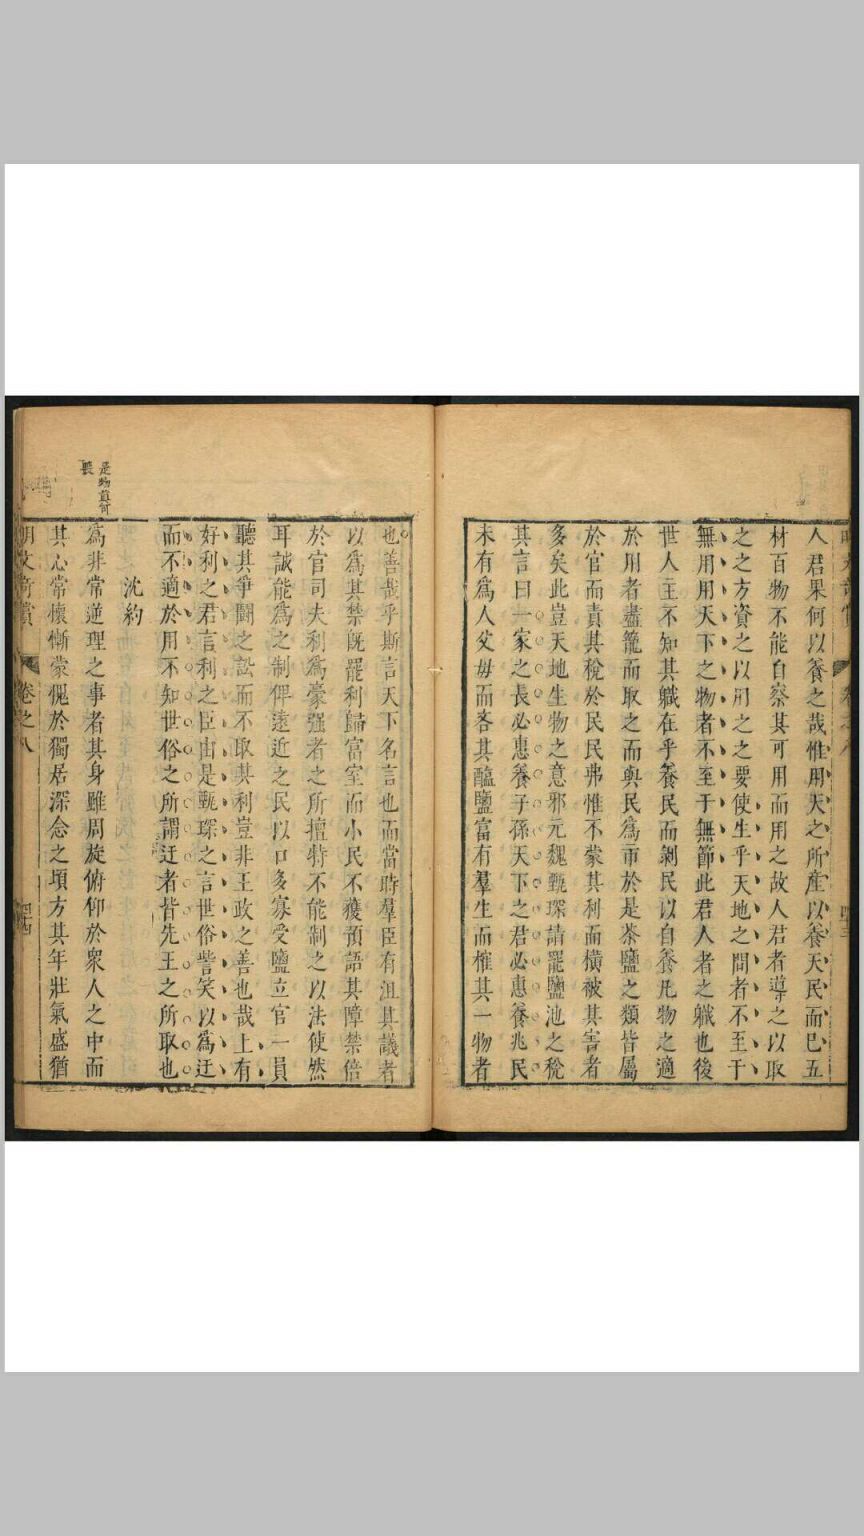 人君果何以養之哉惟用天之所產以養天民而巳五
材百物不能自察其可用而用之故人君者導之以取
之之方資之以用之之要使生乎天地之間者不至于
無用用天下之物者不至于無節此君人者之職也後
世人主不知其職在乎養民而剝民以自養凡物之適
於用者盡籠而取之而與民爲市於是茶鹽之類皆屬
於官而責其稅於民民弗惟不蒙其利而橫被其害者
多矣此豈天地生物之意邪元魏甄琛請罷鹽池之稅
其言曰一家之長必惠養子孫天下之君必惠養兆民
未有爲人父毋而吝其醯鹽富有羣生而榷其一物者
也善哉乎斯言天下名言也而當時羣臣有沮其議者
以爲其禁旣罷利歸富室而小民不獲預語其障禁倍
於官司夫利爲豪强者之所擅特不能制之以法使然
耳誠能爲之制俾遠近之民以口多寡受鹽立官一員
聽其爭鬬之訟而不取其利豈非王政之善也哉上有
好利之君言利之臣由是甄琛之言世俗訾笑以爲迂
而不適於用不知世俗之所謂迂者皆先王之所取也
沈約
爲非常逆理之事者其身雖周旋俯仰於衆人之中而
其心常懷慚蒙愧於獨居深念之頃方其年壯氣盛猶
明文奇賞 卷之八